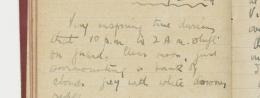 Very inspiring time during
that 10 p.m. to 2 A.m. shift
on guard. Clear moon, just
surmounting a bank of
clouds grey with white
edges